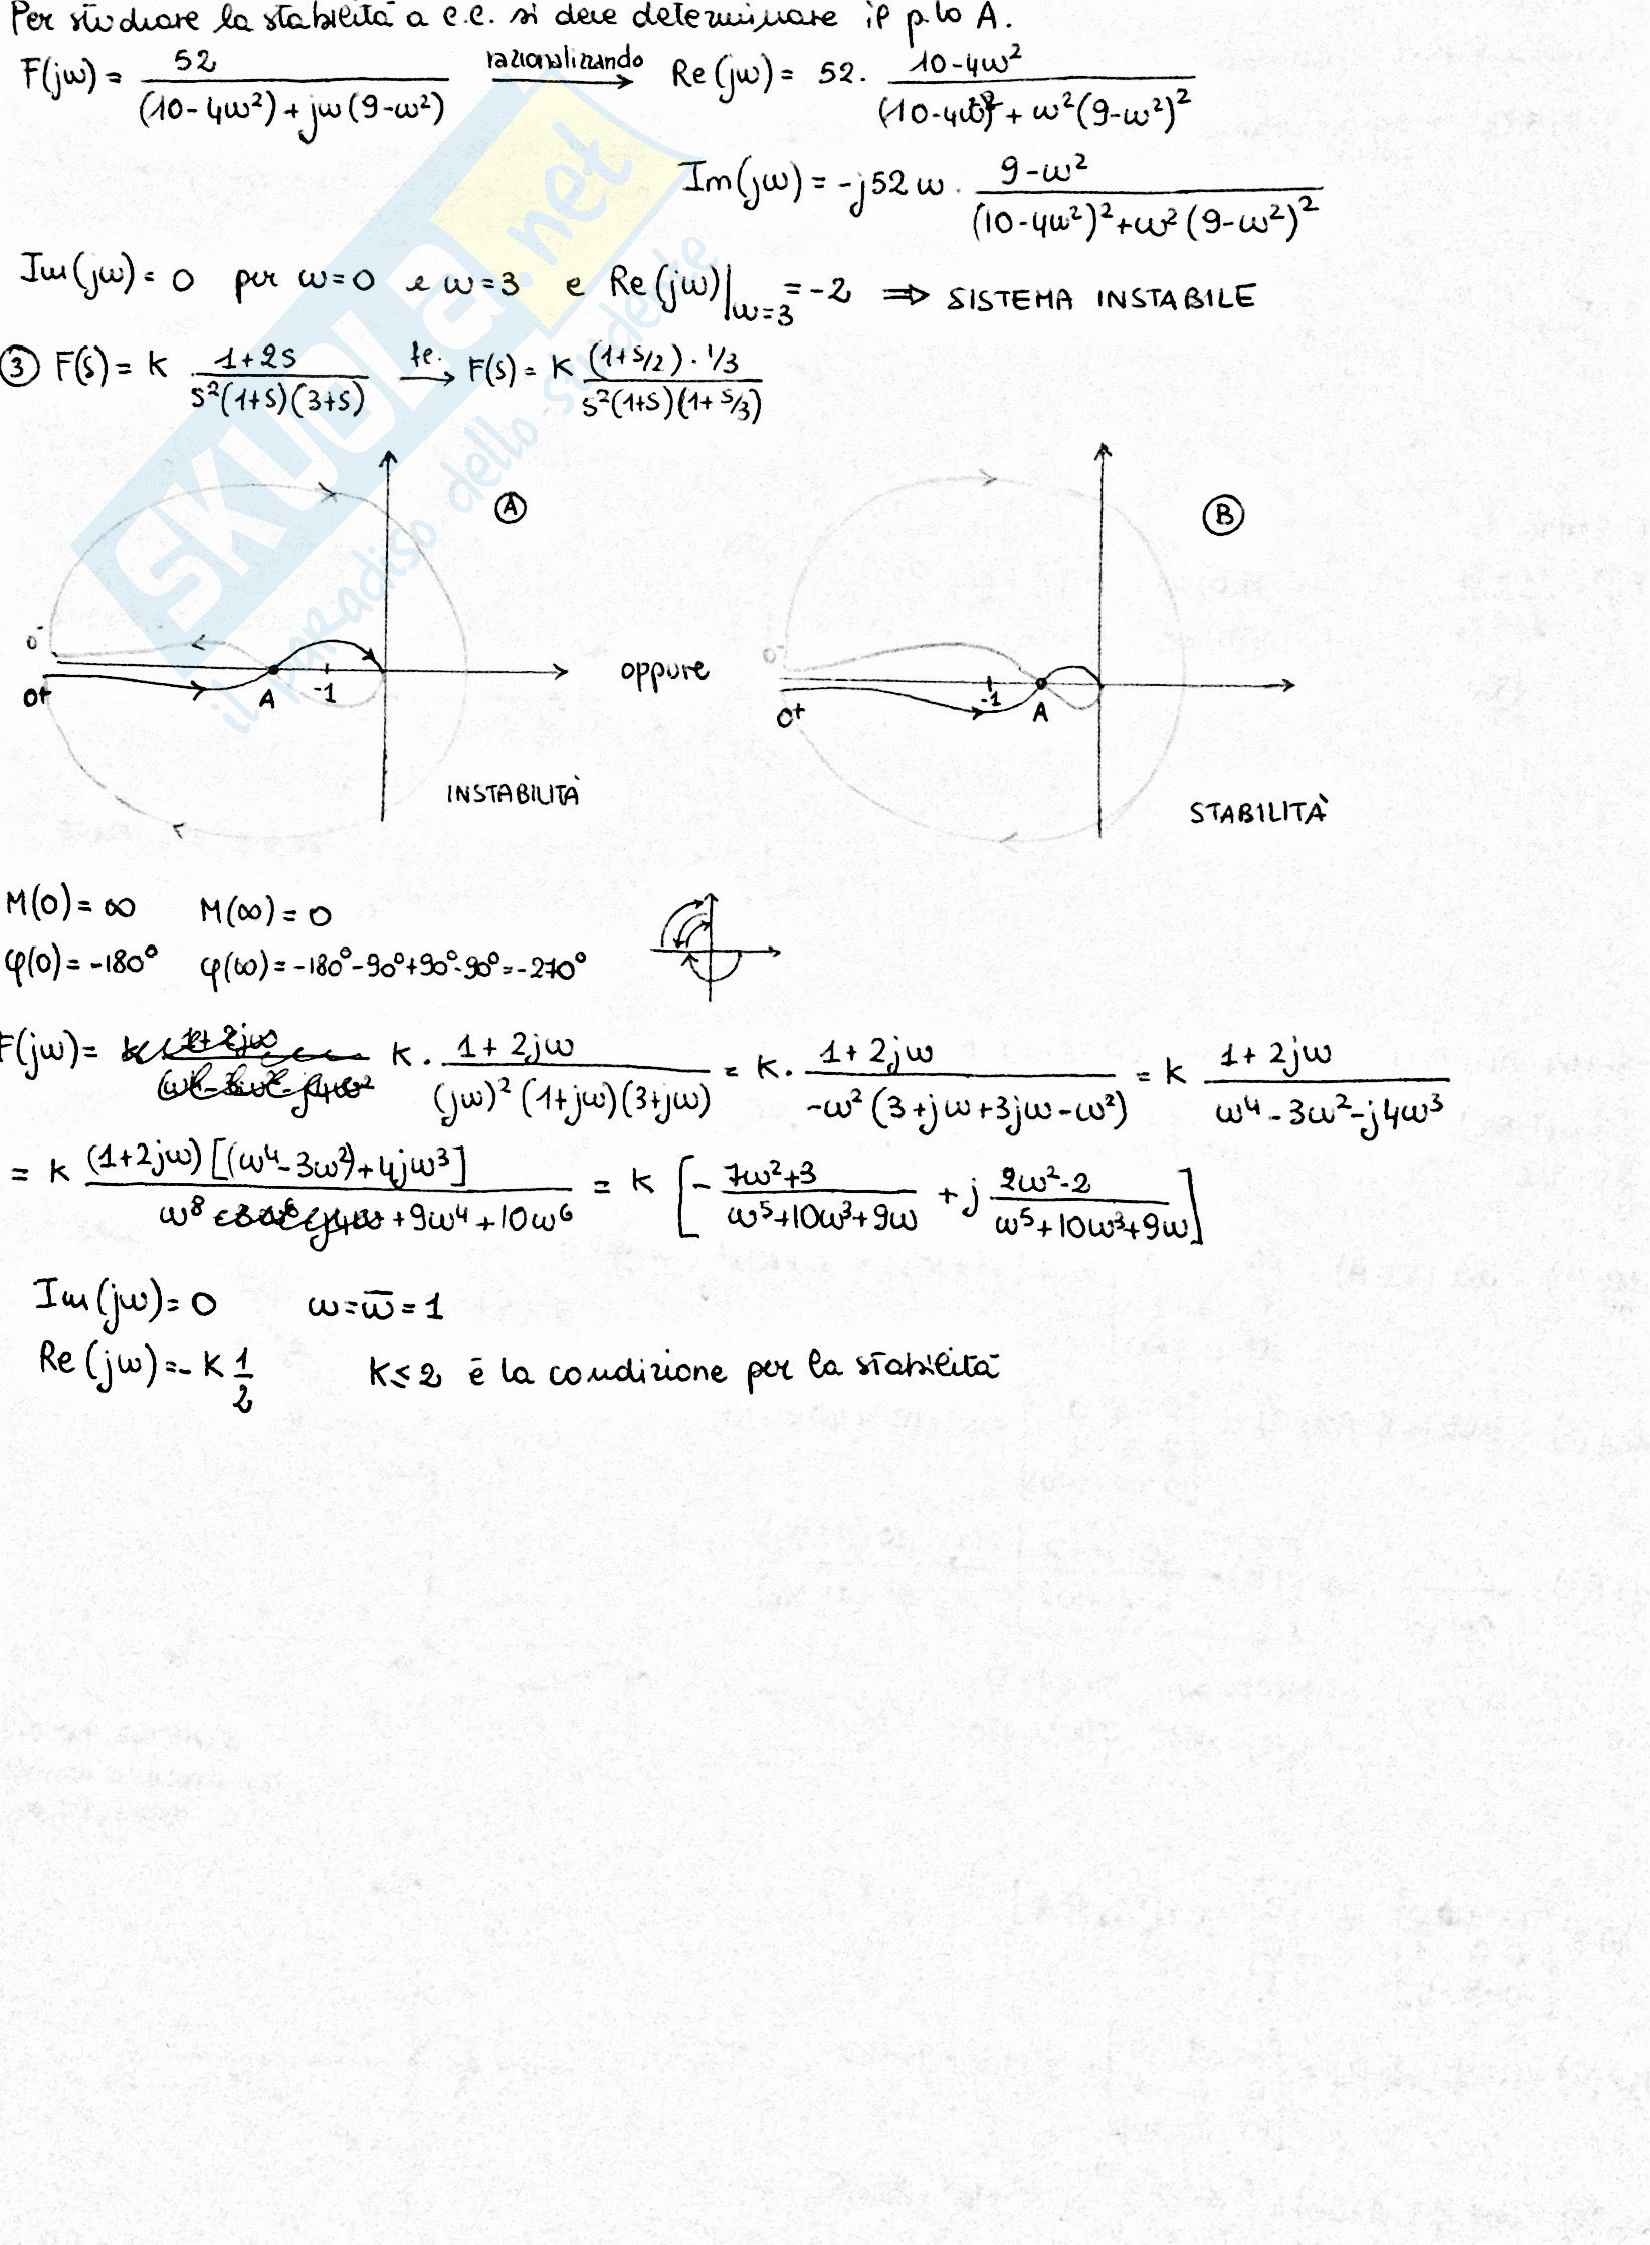 Per studiare la stabilità a c.c. si deve determinare il p.to A.
F(jω) = 52 / ((10-4ω²) + jω(9-ω²)) razionalizzando → Re(jω) = 52 · (10-4ω²) / ((10-4ω²)² + ω²(9-ω²)²)
Im(jω) = -j52ω · (9-ω²) / ((10-4ω²)² + ω²(9-ω²)²)
Im(jω) = 0 per ω=0 e ω=3 e Re(jω)|ω=3 = -2 ⇒ SISTEMA INSTABILE
③ F(s) = K (1+2s) / (s²(1+s)(3+s)) → F(s) = K ((1+s/2) · 1/3) / (s²(1+s)(1+s/3))
A
B
0⁻
0⁺
A
-1
oppure
0⁻
0⁺
-1
A
INSTABILITÀ
STABILITÀ
M(0) = ∞ M(∞) = 0
φ(0) = -180° φ(∞) = -180°-90°+90°-90° = -270°
F(jω) = K · (1+2jω) / ((jω)²(1+jω)(3+jω)) = K · (1+2jω) / (-ω²(3+jω+3jω-ω²)) = K (1+2jω) / (ω⁴-3ω²-j4ω³)
= K (1+2jω)[(ω⁴-3ω²)+4jω³] / (ω⁸ +9ω⁴+10ω⁶) = K [- (7ω²+3) / (ω⁵+10ω³+9ω) + j (2ω²-2) / (ω⁵+10ω³+9ω)]
Im(jω) = 0 ω = ω̅ = 1
Re(jω) = -K 1/2 K≤2 è la condizione per la stabilità
SKUOLA.net
il paradiso dello studente